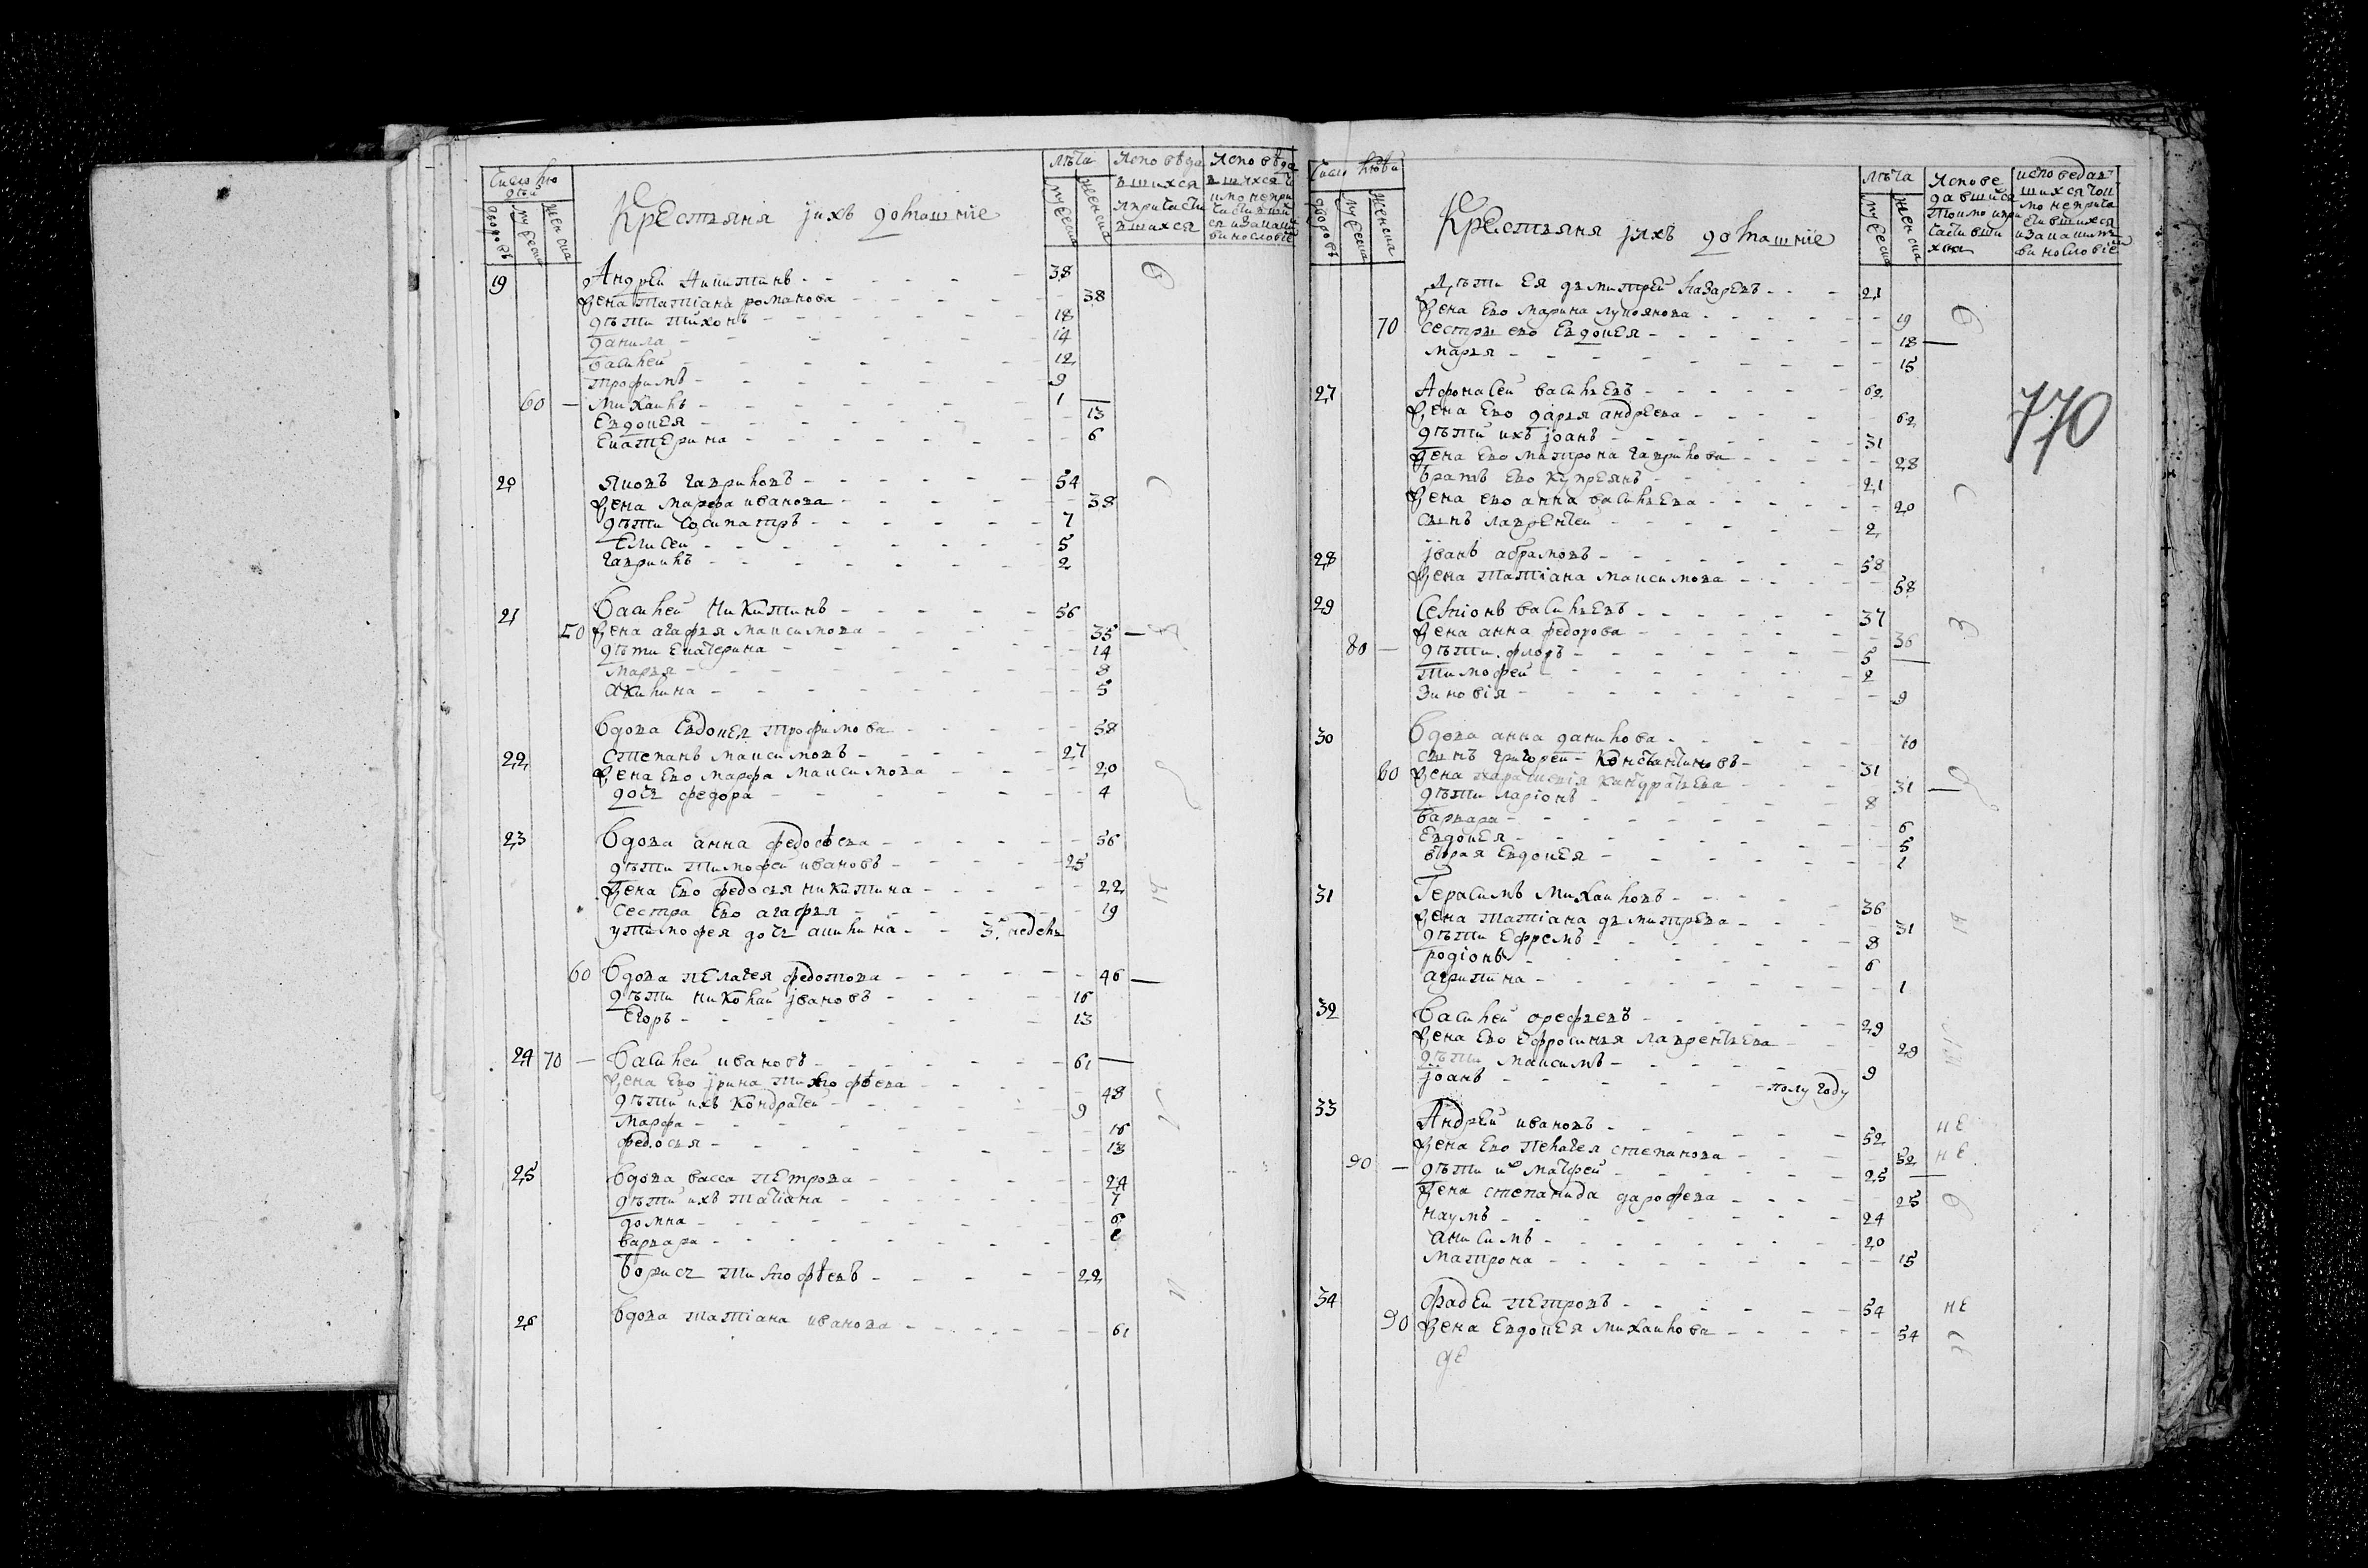 Число людей
дворовъ
мужеска
женска
Крестьяня ихъ домашние
лѣта
мужеска
женска
Исповѣдавшихся и причастившихся
Исповѣдавшихся и
19 Андрей Никитинъ - 38
жена татиана романова - 38
дѣти тихонъ - 18
данила - 14
василей - 12
трофимъ - 9
60 — михаилъ - 1
Евдокея - 13
Екатерина - 6
20 Яковъ гавриловъ - 54
жена марфа иванова - 38
дѣти сосипатръ - 7
Елисей - 5
гаврилъ - 2
21 василей никитинъ - 56
50 жена агафья максимова - 35 —
дѣти Екатерина - 14
марья - 8
акилина - 5
вдова Евдокея трофимова - 58
22 степанъ максимовъ - 27
жена Ево марфа максимова - 20
дочь федора - 4
23 вдова анна федосѣева - 56
дѣти тимофей ивановъ - 25
жена Ево федосья никитина - 22
сестра Ево агафья - 19
у тимофея дочь акилина - 3. недель
60 вдова пелагея федотова - 46 —
дѣти николай ивановъ - 16
Егоръ - 13
24 70 — василей ивановъ - 61 —
жена Ево ирина тимофѣева - 48
дѣти ихъ кондратей - 9
марфа - 16
федосья - 13
25 вдова васса петрова - 24
дѣти ихъ татиана - 7
домна - 6
варвара
борисъ тимофѣевъ - 22
26 вдова татиана иванова - 61
Число людей
дворовъ
мужеска
женска
Крестьяня ихъ домашние
лѣта
мужеска
женска
770
дѣти Ея дьмитрей назаревъ - 21
жена Ево марина лукоянова - 19
70 сестры ево Евдокея - 18 —
марья - 15
27 Афонасей васильевъ - 62
жена Ево дарья андреева - 62
дѣти ихъ иоанъ - 31
жена Ево матрона гаврилова - 28
братъ Ево купреянъ - 21
жена ево анна васильева - 20
сынъ лаврентей - 2
28 иванъ абрамовъ - 58
жена татиана максимова - 58
29 Семионъ васильевъ - 37
жена анна федорова - 36
80 — дѣти флоръ - 5 —
тимофей - 2
зиновия - 9
30 вдова анна данилова - 70
сынъ григорей константиновъ - 31
60 жена парасковия кандратьева - 31 —
дѣти ларионъ - 8
варвара - 6
Евдокея - 5
вторая Евдокея - 1
31 Герасимъ михаиловъ - 36
жена татиана дьмитрева - 31
дѣти Ефремъ - 8
родионъ - 6
агрипина - 1
32 василей орефьевъ - 29
жена Ево Ефросинья лаврентьева - 29
дѣти максимъ - 9
иоанъ - полугоду
33 Андрей ивановъ - 52 не
жена Ево пелагея степанова - 52 не
90 — дѣти их матфей - 25 —
жена степанида дарофеева - 25
наумъ - 24
анисимъ - 20
матрона - 15
34 фадей петровъ - 54 не
90 жена Евдокея михаилова - 54
де